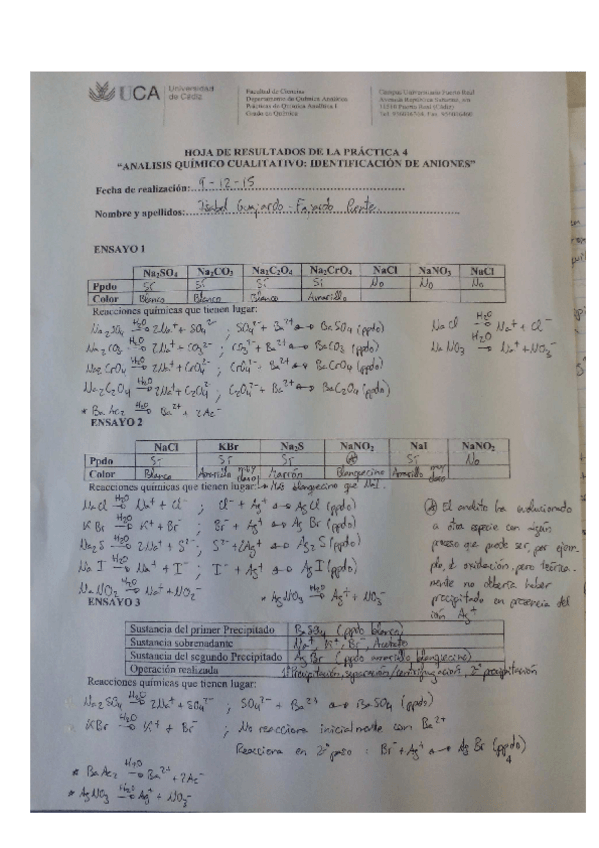 UCA Universidad de Cádiz
Facultad de Ciencias
Departamento de Química Analítica
Prácticas de Química Analítica I
Grado en Química
Campus Universitario Puerto Real
HOJA DE RESULTADOS DE LA PRÁCTICA 4
“ANALISIS QUÍMICO CUALITATIVO: IDENTIFICACIÓN DE ANIONES”
Fecha de realización: 9-12-15
Nombre y apellidos: Isabel Guajardo-Fajardo
ENSAYO 1
Na₂SO₄ Na₂CO₃ Na₂C₂O₄ Na₂CrO₄ NaCl NaNO₃ NaCl
Ppdo Sí Sí Sí Sí No No No
Color Blanco Blanco Blanco Amarillo
Reacciones químicas que tienen lugar:
Na₂SO₄ H₂O→ 2Na⁺ + SO₄²⁻ ; SO₄²⁻ + Ba²⁺ → BaSO₄ (ppdo) NaCl H₂O→ Na⁺ + Cl⁻
Na₂CO₃ H₂O→ 2Na⁺ + CO₃²⁻ ; CO₃²⁻ + Ba²⁺ → BaCO₃ (ppdo) NaNO₃ H₂O→ Na⁺ + NO₃⁻
Na₂CrO₄ H₂O→ 2Na⁺ + CrO₄²⁻ ; CrO₄²⁻ + Ba²⁺ → BaCrO₄ (ppdo)
Na₂C₂O₄ H₂O→ 2Na⁺ + C₂O₄²⁻ ; C₂O₄²⁻ + Ba²⁺ → BaC₂O₄ (ppdo)
* BaAc₂ H₂O→ Ba²⁺ + 2Ac⁻
ENSAYO 2
NaCl KBr Na₂S NaNO₂ NaI NaNO₂
Ppdo Sí Sí Sí Ⓐ Sí No
Color Blanco Amarillo muy claro Marrón Blanquecino Amarillo muy claro
Reacciones químicas que tienen lugar: → Más blanquecino que NaI.
NaCl H₂O→ Na⁺ + Cl⁻ ; Cl⁻ + Ag⁺ → AgCl (ppdo)
KBr H₂O→ K⁺ + Br⁻ ; Br⁻ + Ag⁺ → AgBr (ppdo)
Na₂S H₂O→ 2Na⁺ + S²⁻ ; S²⁻ + 2Ag⁺ → Ag₂S (ppdo)
NaI H₂O→ Na⁺ + I⁻ ; I⁻ + Ag⁺ → AgI (ppdo)
NaNO₂ H₂O→ Na⁺ + NO₂⁻ * AgNO₃ H₂O→ Ag⁺ + NO₃⁻
Ⓐ El analito ha evolucionado
a otra especie con algún
proceso que puede ser, por ejem-
plo, de oxidación, pero teórica-
mente no debería haber
precipitado en presencia del
ión Ag⁺
ENSAYO 3
Sustancia del primer Precipitado BaSO₄ (ppdo blanco)
Sustancia sobrenadante Na⁺, K⁺, Br⁻, Acetato
Sustancia del segundo Precipitado AgBr (ppdo amarillo blanquecino)
Operación realizada 1ª Precipitación, separación/centrifugación, 2ª precipitación
Reacciones químicas que tienen lugar:
Na₂SO₄ H₂O→ 2Na⁺ + SO₄²⁻ ; SO₄²⁻ + Ba²⁺ → BaSO₄ (ppdo)
KBr H₂O→ K⁺ + Br⁻ ; No reacciona inicialmente con Ba²⁺
Reacciona en 2º paso : Br⁻ + Ag⁺ → AgBr (ppdo)
4
* BaAc₂ H₂O→ Ba²⁺ + 2Ac⁻
* AgNO₃ H₂O→ Ag⁺ + NO₃⁻